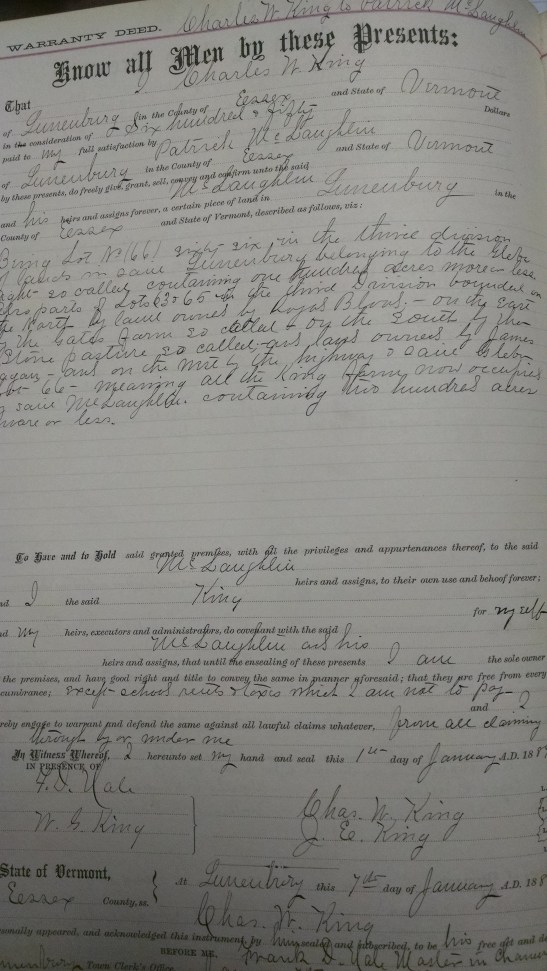 WARRANTY DEED. Charles W. King to Patrick McLaughlin
Know all Men by these Presents:
That I Charles W. King
of Lunenburg in the County of Essex and State of Vermont
in the consideration of Six hundred & fifty Dollars
paid to my full satisfaction by Patrick McLaughlin
of Lunenburg in the County of Essex and State of Vermont
by these presents, do freely give, grant, sell, convey and confirm unto the said
McLaughlin
and his heirs and assigns forever, a certain piece of land in Lunenburg in the
County of Essex and State of Vermont, described as follows, viz:
Being Lot No (66) sixty six in the third division
of lands in said Lunenburg belonging to the
right so called containing one hundred acres more or less
also parts of Lots 63 & 65 in the third Division bounded on
the North by land owned by - on the East
by the Gates farm so called - on the South by the
Stone pasture so called and land owned by James
- and on the West by the highway & said
Lot - 66 - meaning all the King Farm now occupied
by said McLaughlin. containing two hundred acres
more or less.
To Have and to Hold said granted premises, with all the privileges and appurtenances thereof, to the said
McLaughlin
heirs and assigns, to their own use and behoof forever;
and I the said King
for myself
and my heirs, executors and administrators, do covenant with the said
McLaughlin and his
heirs and assigns, that until the ensealing of these presents I am the sole owner
the premises, and have good right and title to convey the same in manner aforesaid; that they are free from every
cumbrance; except school rents & taxes which I am not to pay
and I
reby engage to warrant and defend the same against all lawful claims whatever, from all claiming
through by or under me
In Witness Whereof, I hereunto set my hand and seal this 1st day of January A.D. 188
IN PRESENCE OF
F. D. Hale
W. G. King
Chas. W. King
J. E. King
State of Vermont,
Essex County, ss. } At Lunenburg this 7th day of January A.D. 188
Chas. W. King
sonally appeared, and acknowledged this instrument, by him sealed and subscribed, to be his free act and de
BEFORE ME, Frank D. Hale Master in Chance
Lunenburg Town Clerk's Office